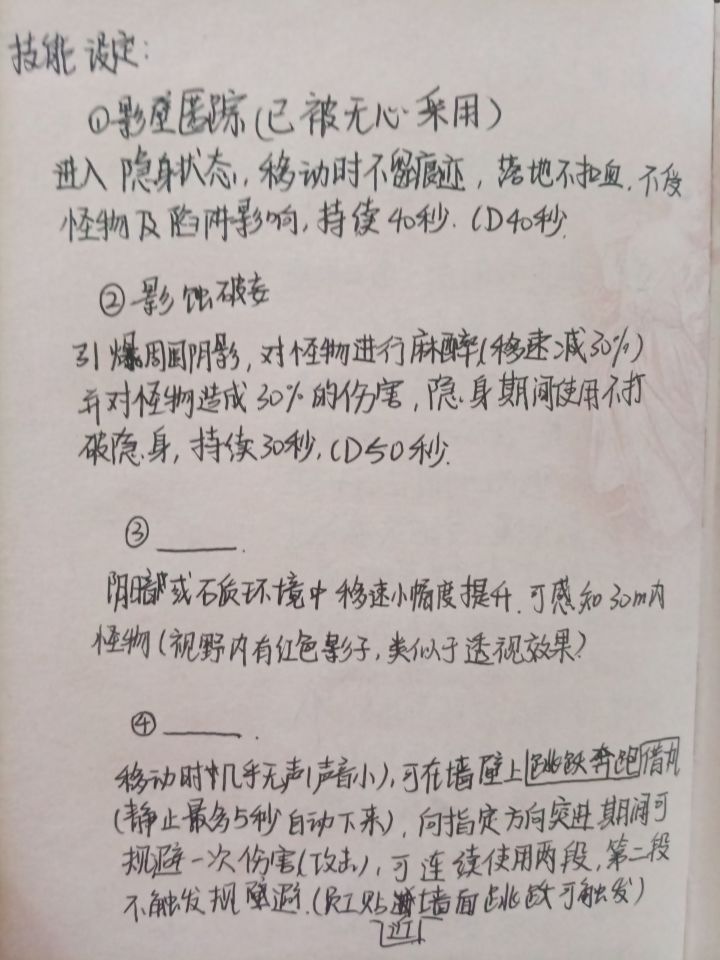 技能设定:
①影壁匿踪(已被无心采用)
进入隐身状态,移动时不留痕迹,落地不扣血,不受
怪物及陷阱影响,持续40秒.CD40秒.
②影蚀破妄
引爆周围阴影,对怪物进行麻醉(移速减30%)
并对怪物造成30%的伤害,隐身期间使用不打
破隐身,持续30秒,CD50秒.
③______.
阴暗或石质环境中移速小幅度提升.可感知30m内
怪物(视野内有红色影子,类似于透视效果)
④______.
移动时几乎无声(声音小),可在墙壁上跳跃奔跑借力
(静止最多5秒自动下来),向指定方向突进期间可
规避一次伤害(攻击),可连续使用两段,第二段
不触发规避.(贴近墙面跳跃可触发)